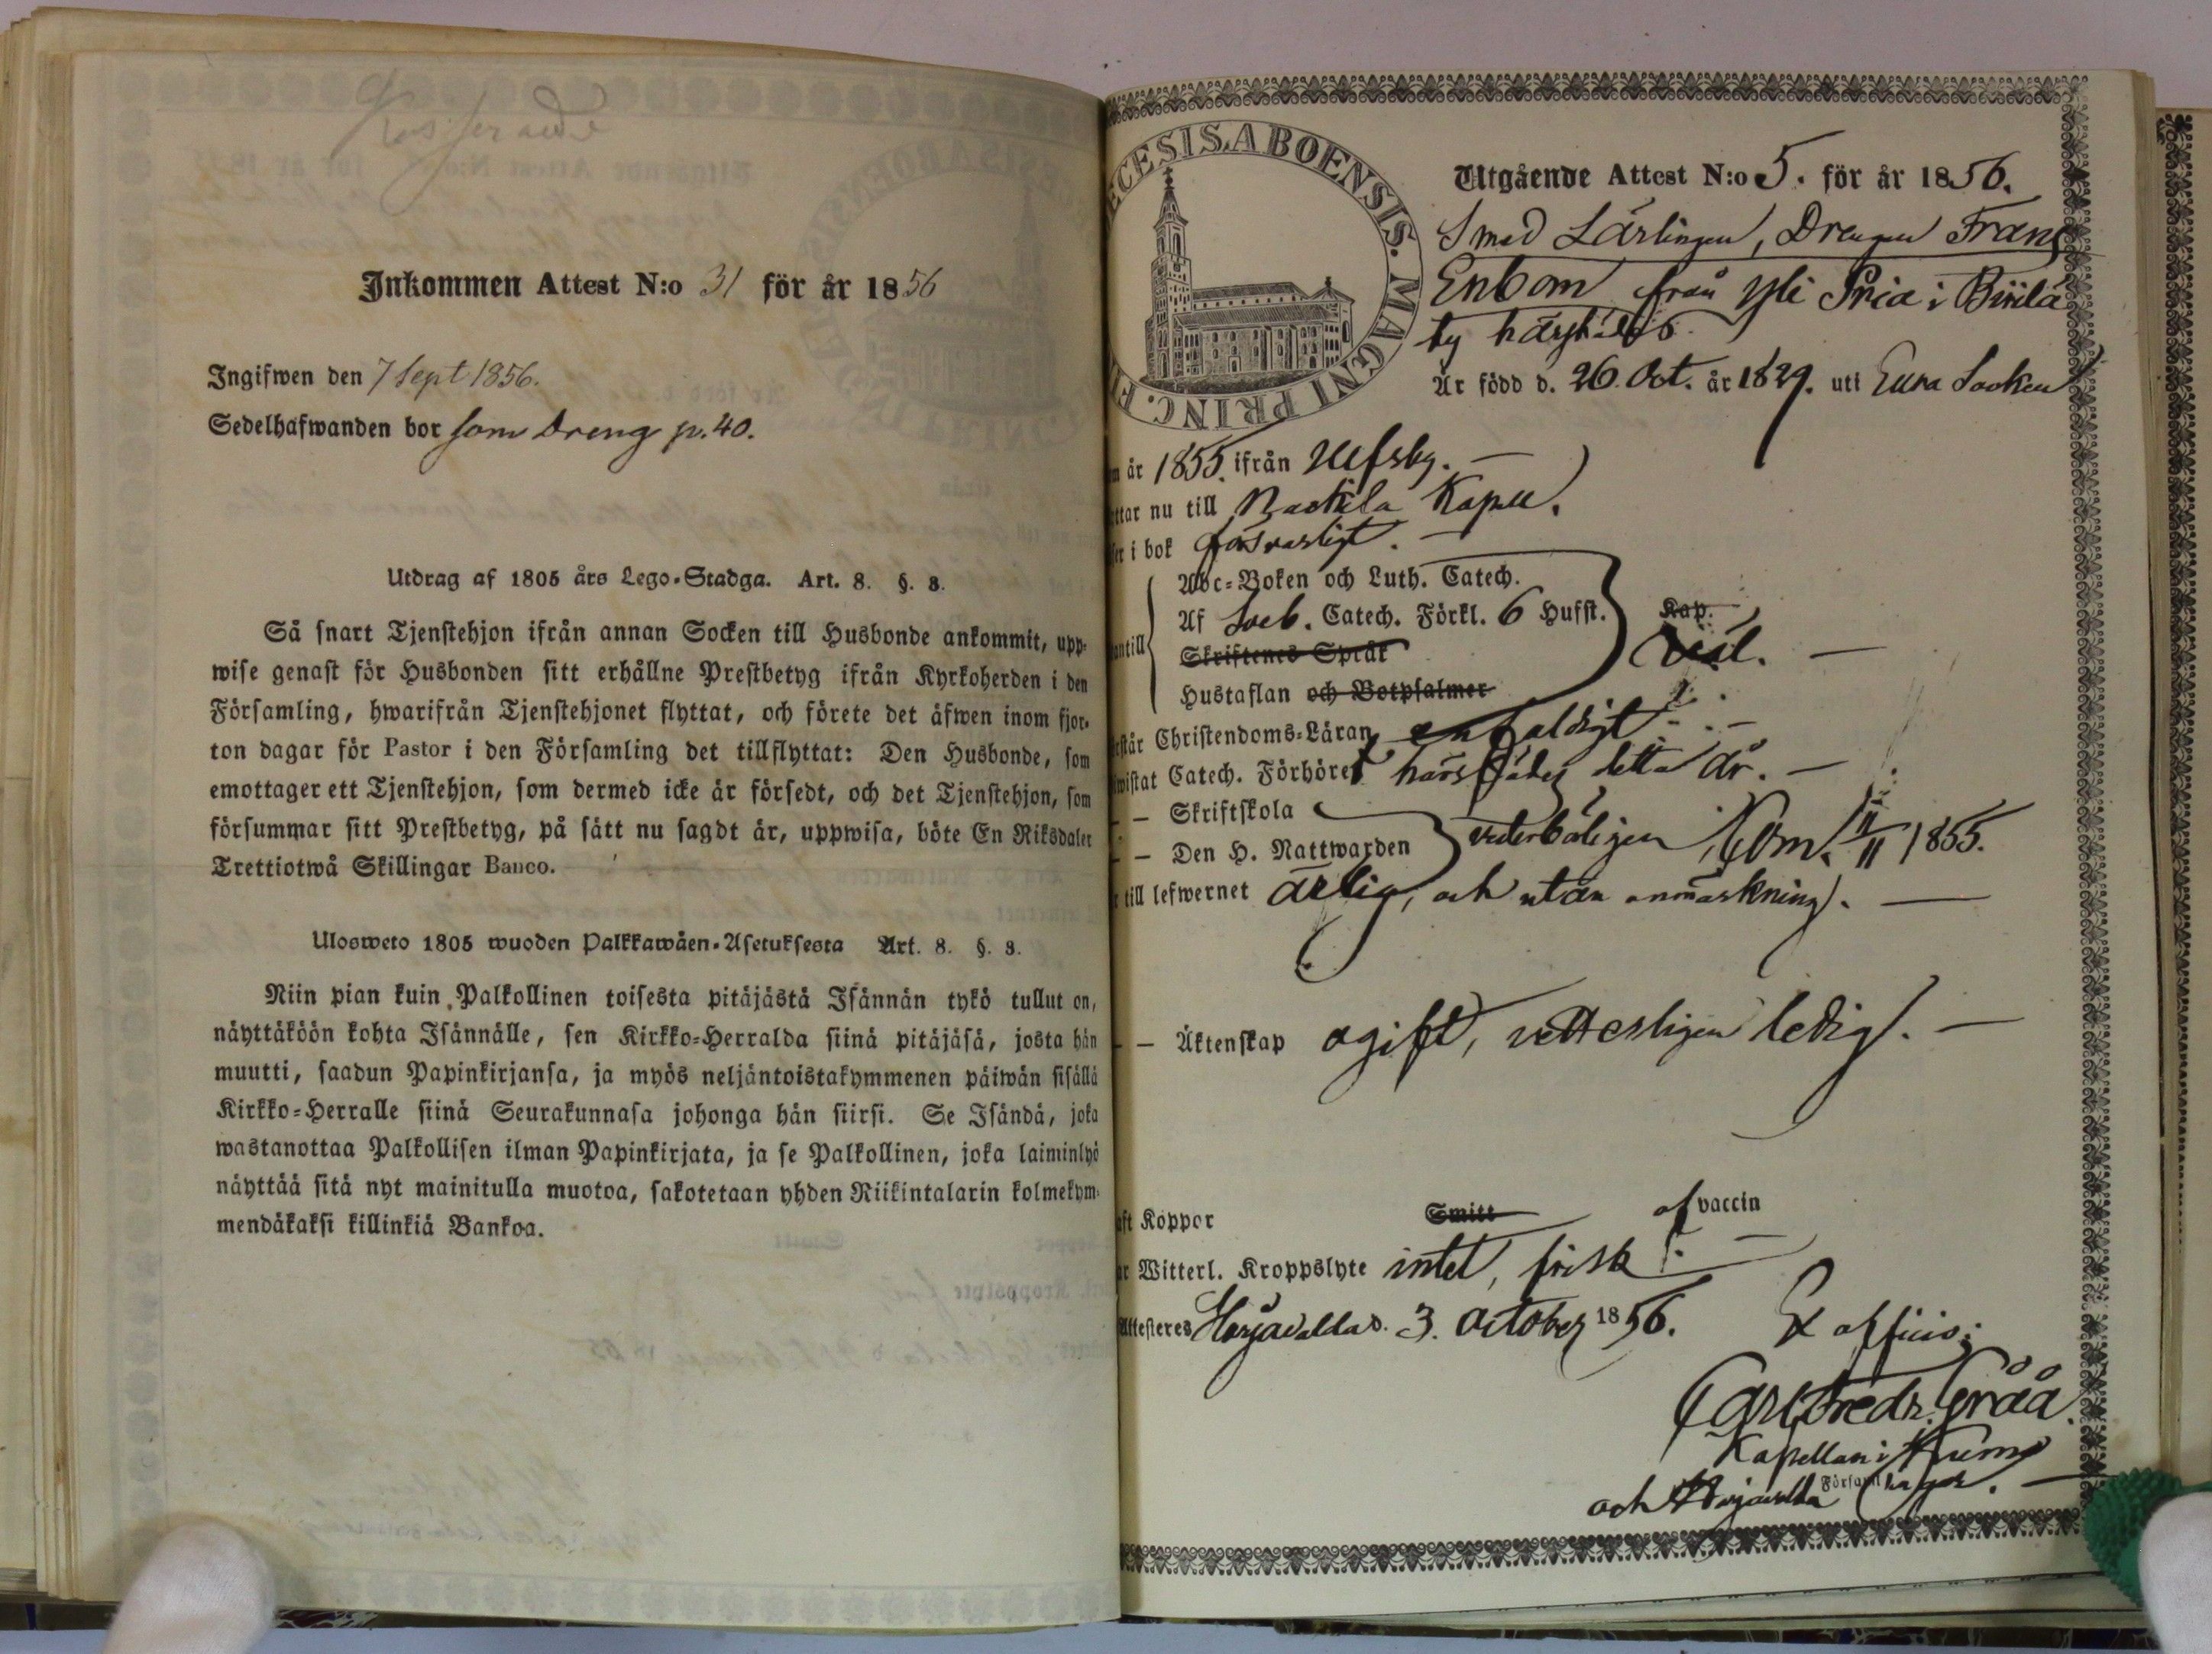 Inkommen Attest N:o 31 för år 1856
Ingifwen den 7 Sept 1856.
Sedelhafwanden bor som Dreng p. 40.
Utdrag af 1805 års Lego-Stadga. Art. 8. §. 8.
Så snart Tjenstehjon ifrån annan Socken till Husbonde ankommit, upp-
wise genast för Husbonden sitt erhållne Prestbetyg ifrån Kyrkoherden i den
Församling, hwarifrån Tjenstehjonet flyttat, och förete det äfwen inom fjor-
ton dagar för Pastor i den Församling det tillflyttat: Den Husbonde, som
emottager ett Tjenstehjon, som dermed icke är försedt, och det Tjenstehjon, som
försummar sitt Prestbetyg, på sätt nu sagdt är, uppwisa, böte En Riksdaler
Trettiotwå Skillingar Banco.
Ulosweto 1805 wuoden Palkkawäen-Asetuksesta Art. 8. §. 8.
Niin pian kuin Palkollinen toisesta pitäjästä Isännän tykö tullut on,
näyttäköön kohta Isännälle, sen Kirkko-Herralda siinä pitäjäsä, josta hän
muutti, saadun Papinkirjansa, ja myös neljäntoistakymmenen päiwän sisällä
Kirkko-Herralle siinä Seurakunnasa johonga hän siirsi. Se Isändä, joka
wastanottaa Palkollisen ilman Papinkirjata, ja se Palkollinen, joka laiminlyö
näyttää sitä nyt mainitulla muotoa, sakotetaan yhden Riikintalarin kolmekym-
mendäkaksi killinkiä Bankoa.
ECESIS. ABOENSIS. MAGNI PRINC. FI
Utgående Attest N:o 5. för år 1856.
Smed Lärlingen, Drengen Frans
Enbom från Yli Pria i
by härstädes.
Är född d. 26. Oct. år 1829. uti Eura Socken
år 1855. ifrån Ulfsby.
ttar nu till Kapell.
i bok försvarligt.
Abc-Boken och Luth. Catech.
Af Sveb. Catech. Förkl. 6 Hufst. Kap.
antill Skriftenes Språk väl.
Hustaflan och Botpsalmer
rstår Christendoms-Läran enfaldigt
wistat Catech. Förhöret härstädes detta år.
– Skriftskola
– Den H. Nattwarden vederbörligen, Com. 11/11 1855.
till lefwernet ärlig, och utan anmärkning.
– Äktenskap ogift, vetterligen ledig.
aft Koppor Smitt af vaccin
ar Witterl. Kroppslyte intet, frisk
Attesteres Harjavalda d. 3. October 1856. Ex officio:
Carl Fredr. Gråå.
Kapellan i Kumo
och Harjavalda Församlingar.